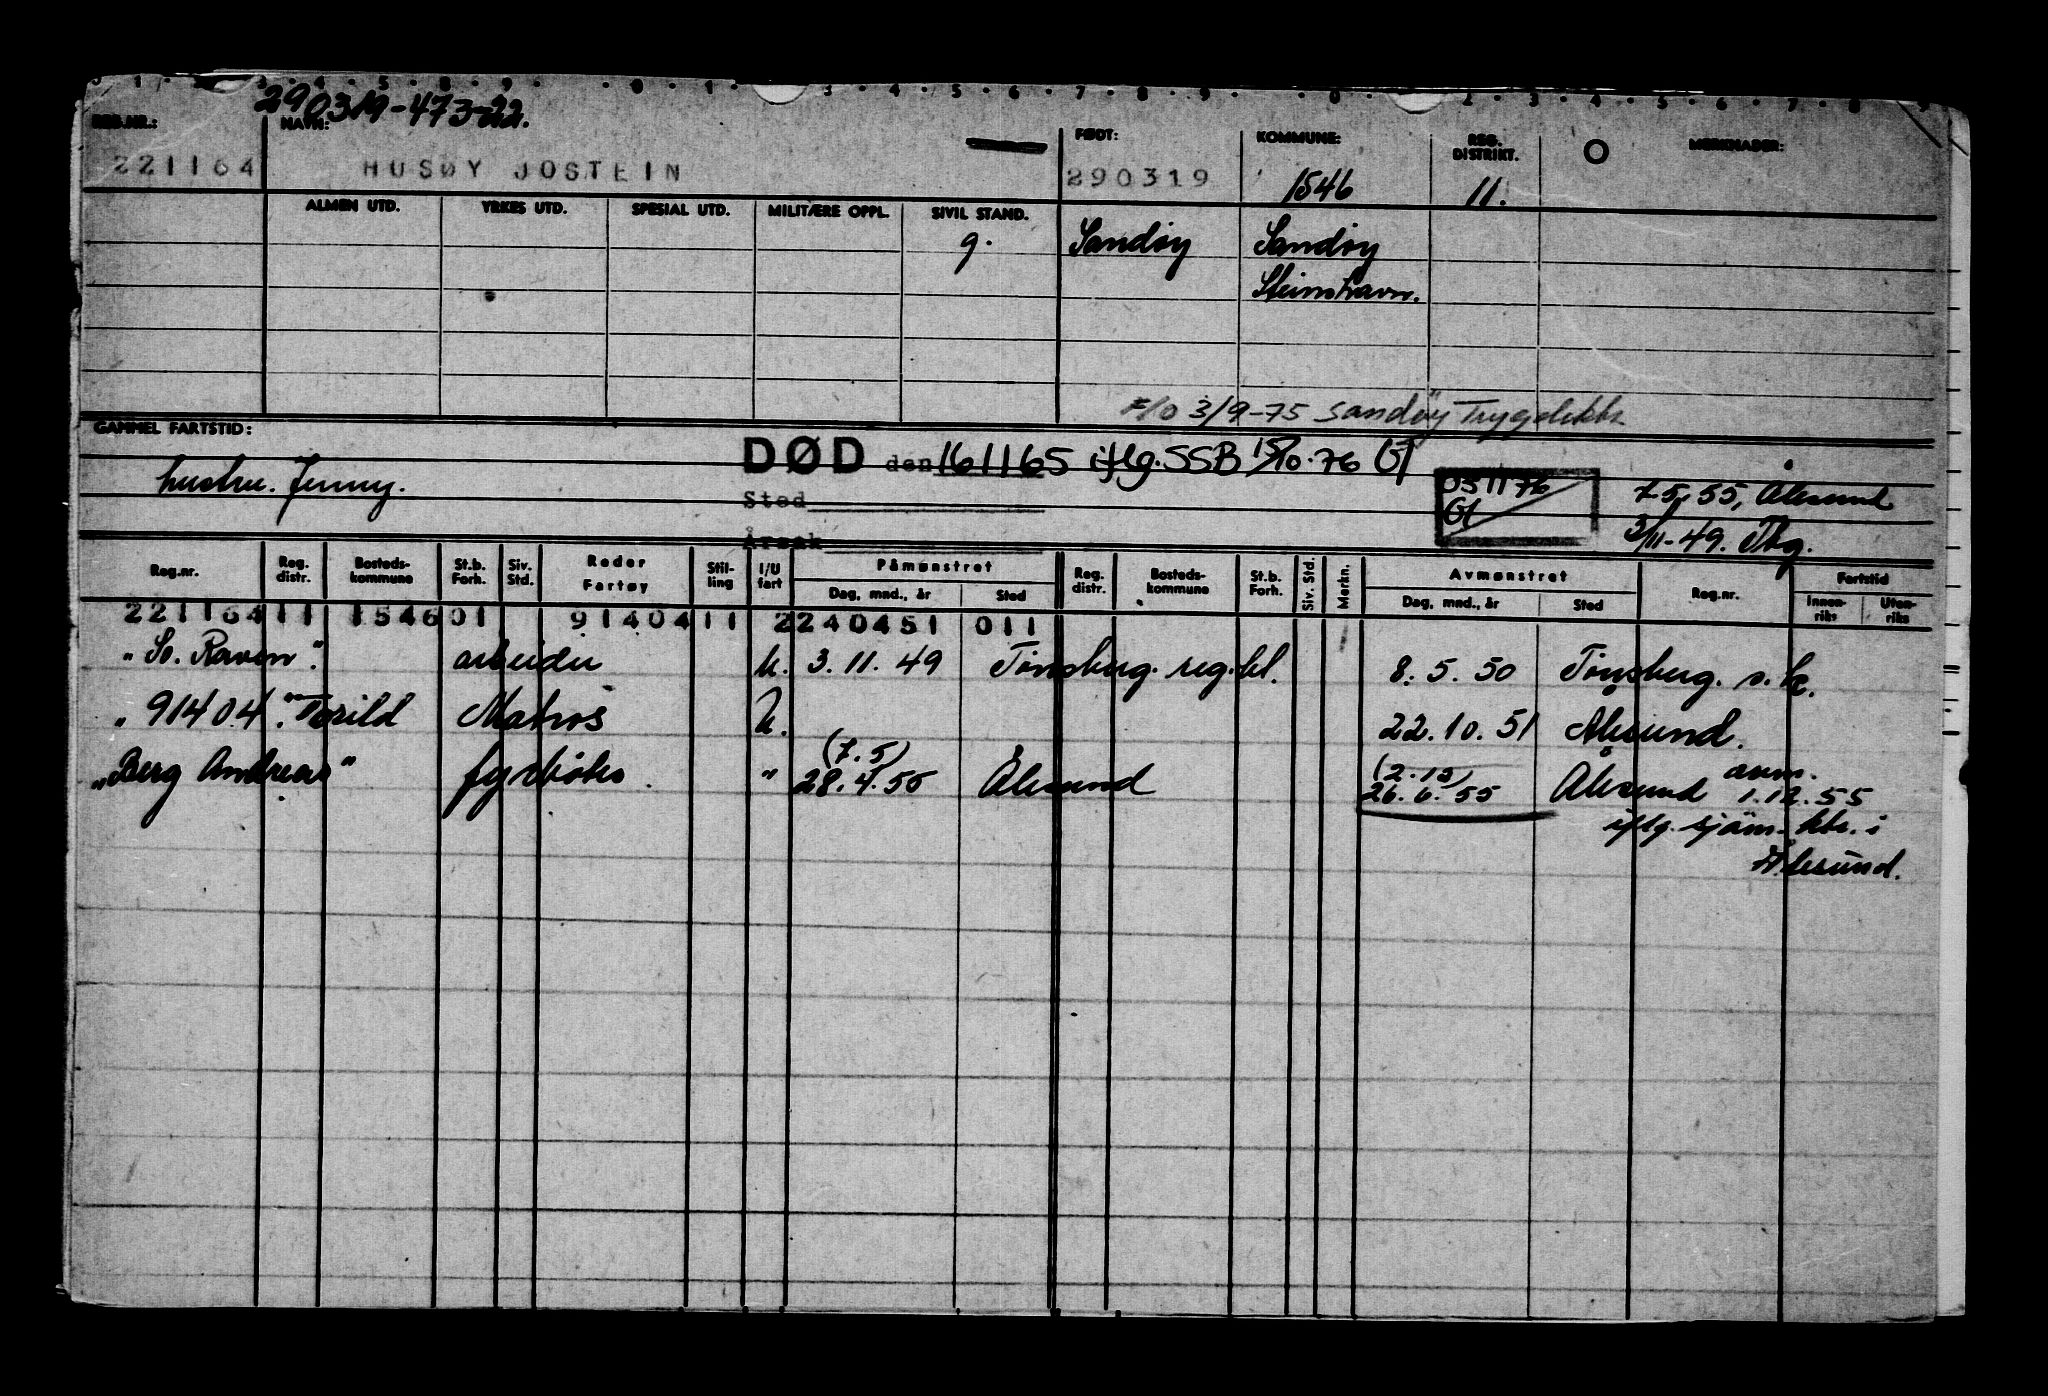 290319-473-22.
REG.NR.: NAVN: FØDT: KOMMUNE: REG. DISTRIKT. MERKNADER:
221164 HUSØY JOSTEIN 290319 1546 11.
ALMEN UTD. YRKES UTD. SPESIAL UTD. MILITÆRE OPPL. SIVIL STAND.
g. Sandøy Sandøy
Steinshavn.
F/O 3/9-75 Sandöy Trygdektr.
GAMMEL FARTSTID:
DØD den 161165 iflg. SSB 15/10.76 GJ
hustru. Jenny.
Sted
Årsak
031176
GJ
7.5.55, Ålesund
3/11-49. Tbg.
Reg.nr. Reg. distr. Bosteds-kommune St.b. Forh. Siv. Std. Reder Fartøy Stil-ling I/U fart Påmønstret Dag, mnd., år Sted Reg. distr. Bosteds-kommune St.b. Forh. Siv. Std. Merkn. Avmønstret Dag, mnd., år Sted Reg.nr. Fartstid Innen-riks Uten-riks
221164 11 1546 01 91404 11 2 240451 011
"So. Raven". arbeider u. 3.11.49 Tønsberg. reg.bl. 8.5.50 Tønsberg. s.k.
" 91404. "Torild Matros U. 22.10.51 Ålesund.
"Berg Andreas" fyrbøter " (7.5) 28.4.55 Ålesund (2.12) 26.6.55 Ålesund avm. 1.12.55
iflg. sjöm. ktr. i
Ålesund.